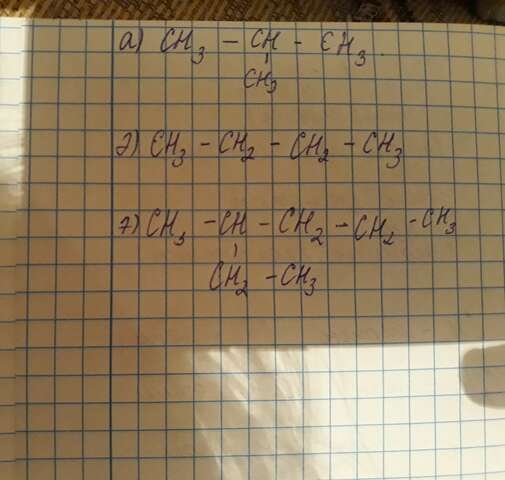 а) CH3 – CH – CH3
CH3
д) CH3 – CH2 – CH2 – CH3
7) CH3 – CH – CH2 – CH2 – CH3
CH2 – CH3